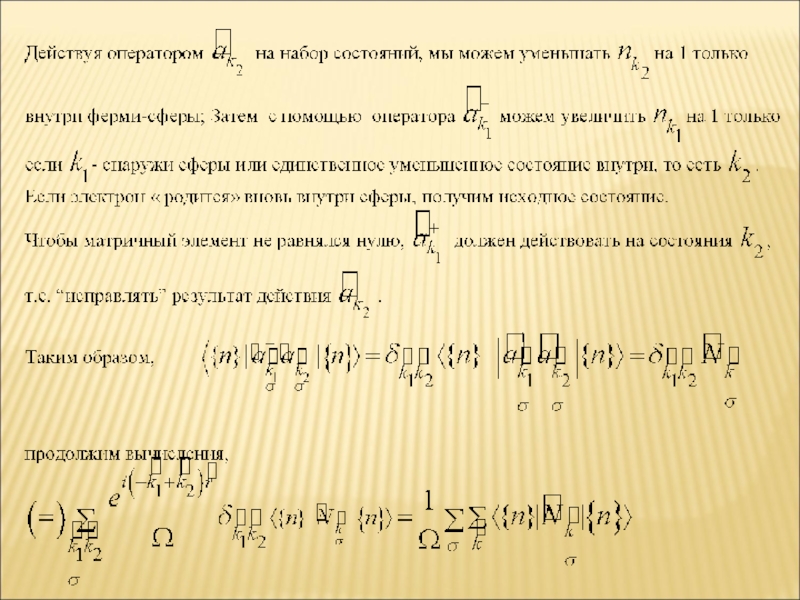 Действуя оператором a_{k_2} на набор состояний, мы можем уменьшать n_{k_2} на 1 только
внутри ферми-сферы; Затем с помощью оператора a^+_{k_1} можем увеличить n_{k_1} на 1 только
если k_1 - снаружи сферы или единственное уменьшенное состояние внутри, то есть k_2 .
Если электрон « родится» вновь внутри сферы, получим исходное состояние.
Чтобы матричный элемент не равнялся нулю, a^+_{k_1} должен действовать на состояния k_2 ,
т.е. “исправлять” результат действия a_{k_2} .
Таким образом, ⟨{n}|a^+_{k_1σ} a_{k_2σ}|{n}⟩ = δ_{k_1k_2} ⟨{n}|a^+_{k_1σ} a_{k_2σ}|{n}⟩ = δ_{k_1k_2} N_{kσ}
продолжим вычисления,
(=) ∑_{k_1k_2σ} e^{i(-k_1+k_2)r} / Ω δ_{k_1k_2} ⟨{n} N_{kσ} {n}⟩ = 1/Ω ∑_σ ∑_k ⟨{n}|N_{kσ}|{n}⟩